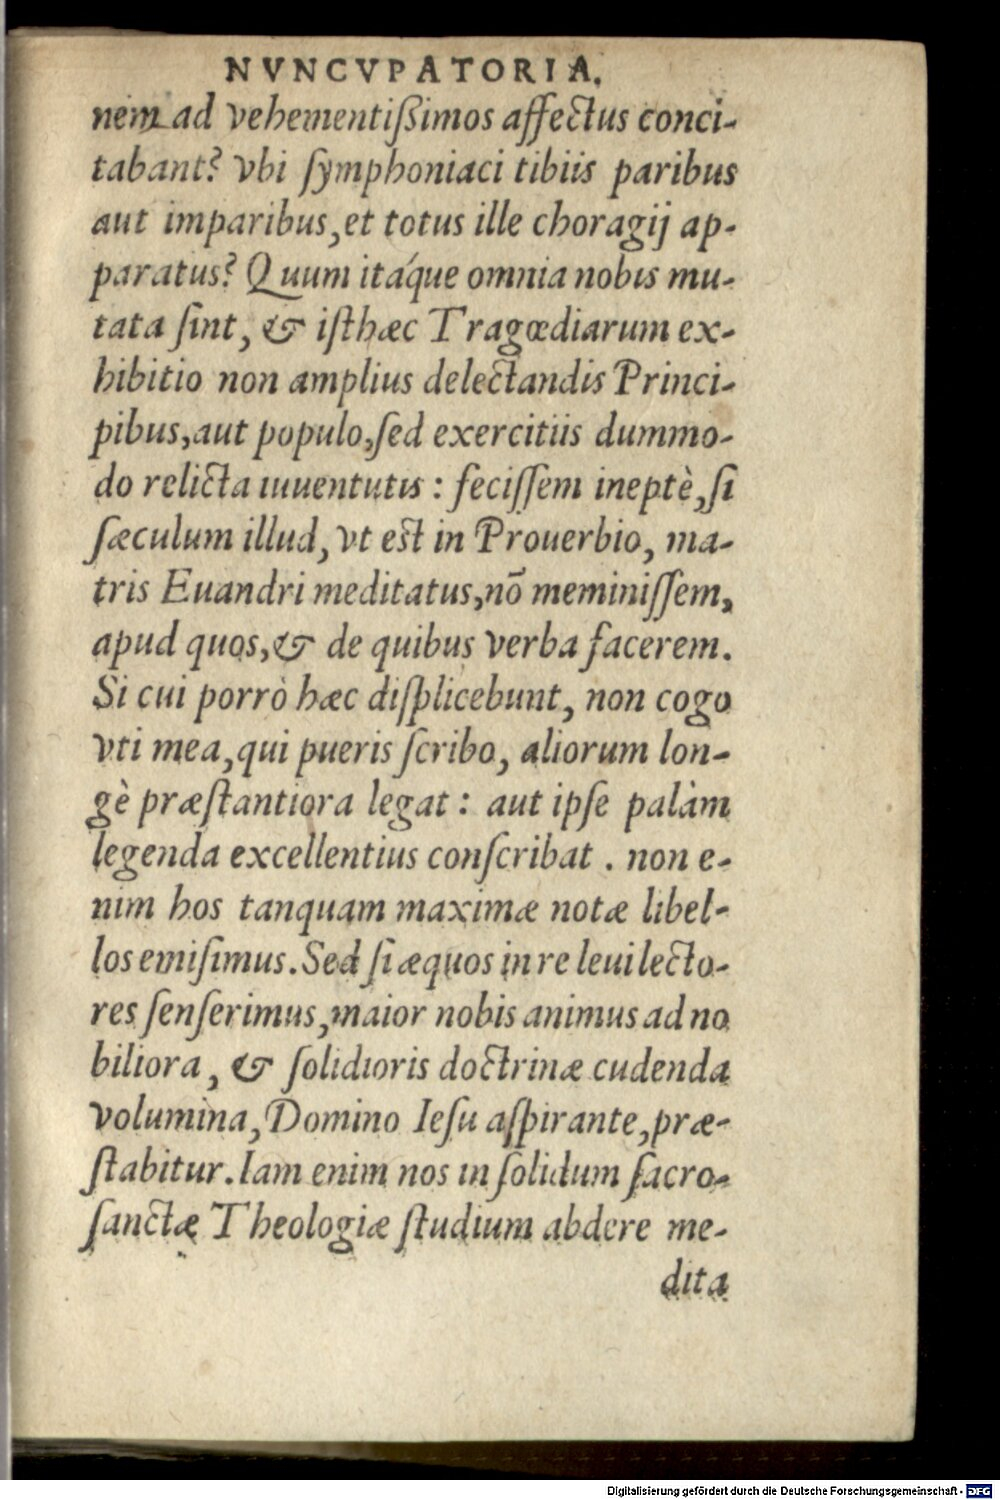 NVNCVPATORIA.
nem ad vehementißimos affectus conci-
tabant? vbi ſymphoniaci tibiis paribus
aut imparibus, et totus ille choragij ap-
paratus? Quum itáque omnia nobis mu-
tata ſint, & iſthæc Tragœdiarum ex-
hibitio non amplius delectandis Princi-
pibus, aut populo, ſed exercitiis dummo-
do relicta iuuentutis : feciſſem ineptè, ſi
ſæculum illud, vt est in Prouerbio, ma-
tris Euandri meditatus, nõ meminiſſem,
apud quos, & de quibus verba facerem.
Si cui porrò hæc diſplicebunt, non cogo
vti mea, qui pueris ſcribo, aliorum lon-
gè præſtantiora legat : aut ipſe palàm
legenda excellentius conſcribat . non e-
nim hos tanquam maximæ notæ libel-
los emiſimus. Sed ſi æquos in re leui lecto-
res ſenſerimus, maior nobis animus ad no
biliora, & ſolidioris doctrinæ cudenda
volumina, Domino Ieſu aſpirante, præ-
ſtabitur. Iam enim nos in ſolidum ſacro-
ſanctæ Theologiæ ſtudium abdere me-
dita
Digitalisierung gefördert durch die Deutsche Forschungsgemeinschaft - DFG